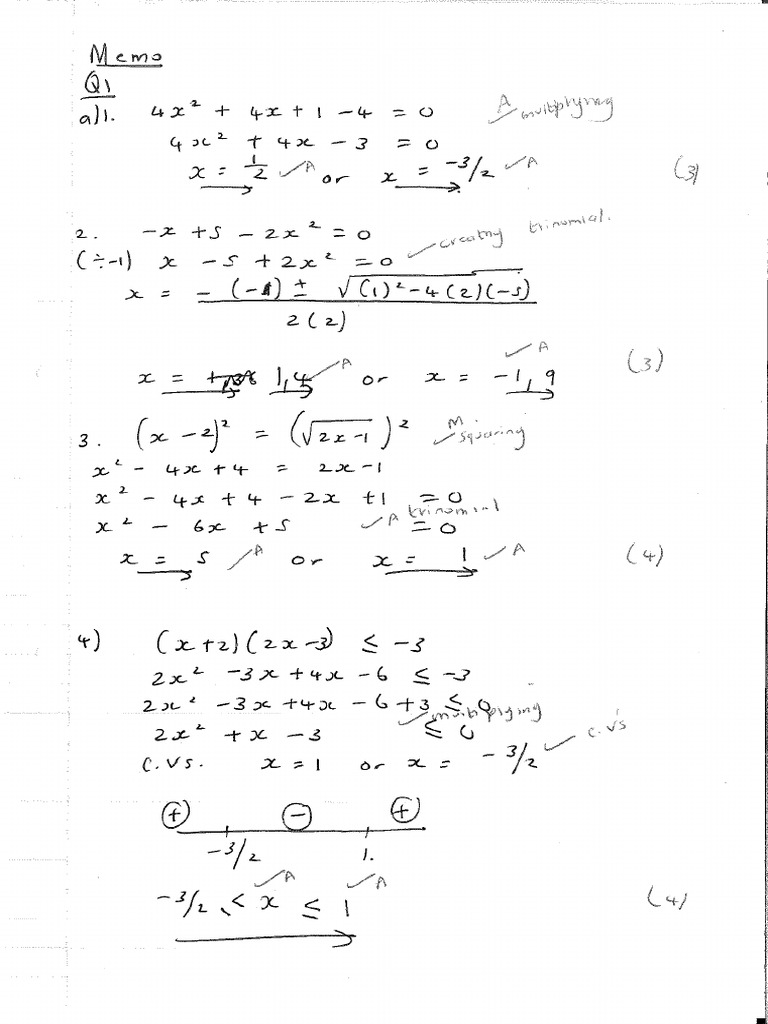 Memo
Q1
a)1. 4x² + 4x + 1 - 4 = 0 A ✓ multiplying
4x² + 4x - 3 = 0
x = 1/2 ✓A or x = -3/2 ✓A (3)
2. -x + 5 - 2x² = 0
(÷-1) x - 5 + 2x² = 0 ✓ creating trinomial.
x = -(-1) ± √(1)² - 4(2)(-5) / 2(2)
x = 1,4 ✓A or x = -1,9 ✓A (3)
3. (x - 2)² = (√2x-1)² M. ✓ squaring
x² - 4x + 4 = 2x - 1
x² - 4x + 4 - 2x + 1 = 0
x² - 6x + 5 = 0 ✓A trinomial
x = 5 ✓A or x = 1 ✓A (4)
4) (x+2)(2x-3) ≤ -3
2x² - 3x + 4x - 6 ≤ -3
2x² - 3x + 4x - 6 + 3 ≤ 0
2x² + x - 3 ≤ 0 ✓ multiplying
C.Vs. x = 1 or x = -3/2 ✓ C.V's
+ - +
-3/2 1.
-3/2 ≤ x ≤ 1 ✓A ✓A (4)